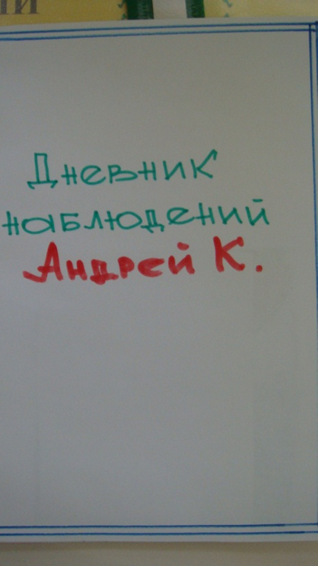 Дневник
наблюдений
Андрей К.